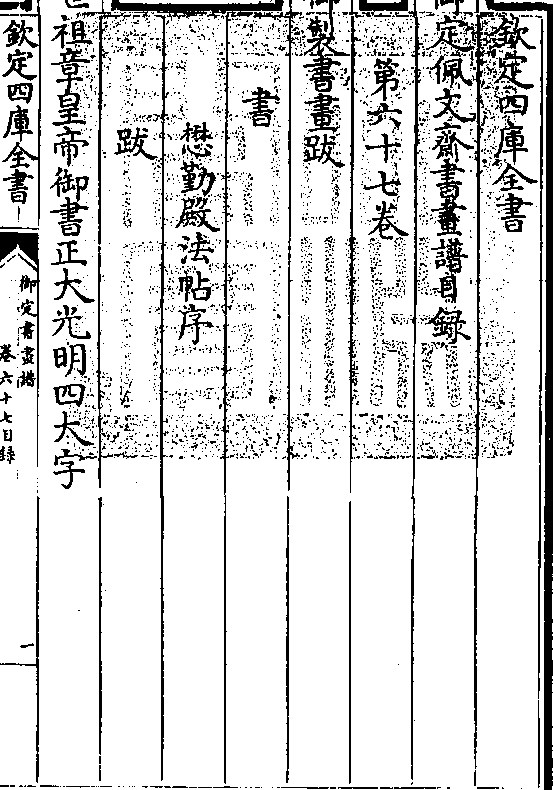 欽定四庫全書
定佩文齋書畫譜目錄
第六十七卷
製書畫跋
書
懋勤殿法帖序
跋
祖章皇帝御書正大光明四大字
欽定四庫全書
御定書畫譜
卷六十七目錄
一